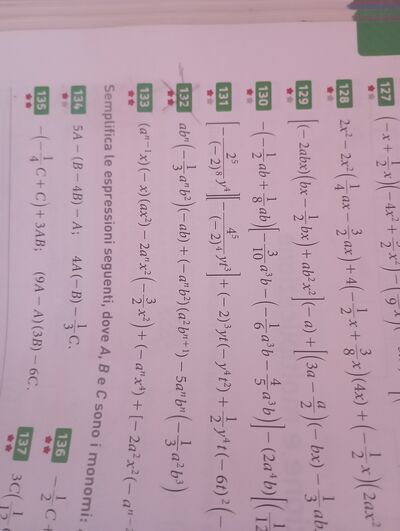 127 (-x + 1/2 x)(-4x² +
128 2x² - 2x²(1/4 ax - 3/2 ax) + 4(-1/2 x + 3/8 x)(4x) + (-1/2 x)(2ax²
129 [(-2abx)(bx - 1/2 bx) + ab²x²](-a) + [(3a - a/2)(-bx) - 1/3 ab
130 -(-1/2 ab + 1/8 ab)[-3/10 a³b - (-1/6 a³b - 4/5 a³b)] - (2a⁴b)[(1/12
131 [-2⁵/(-2)⁸ y⁴][-4⁵/(-2)⁴ yt³] + (-2)³yt(-y⁴t²) + 1/2 y⁴t(-6t)²(-
132 abⁿ(-1/3 aⁿb²)(-ab) + (-aⁿb²)(a²bⁿ⁺¹) - 5aⁿbⁿ(-1/3 a²b³)
133 (aⁿ⁻¹x)(-x)(ax²) - 2aⁿx²(-3/2 x²) + (-aⁿx⁴) + [-2a²x²(-aⁿ⁻
Semplifica le espressioni seguenti, dove A, B e C sono i monomi:
134 5A - (B - 4B) - A; 4A(-B) - 1/3 C.
135 -(-1/4 C + C) + 3AB; (9A - A)(3B) - 6C.
136 -1/2 C +
137 3C(1/12